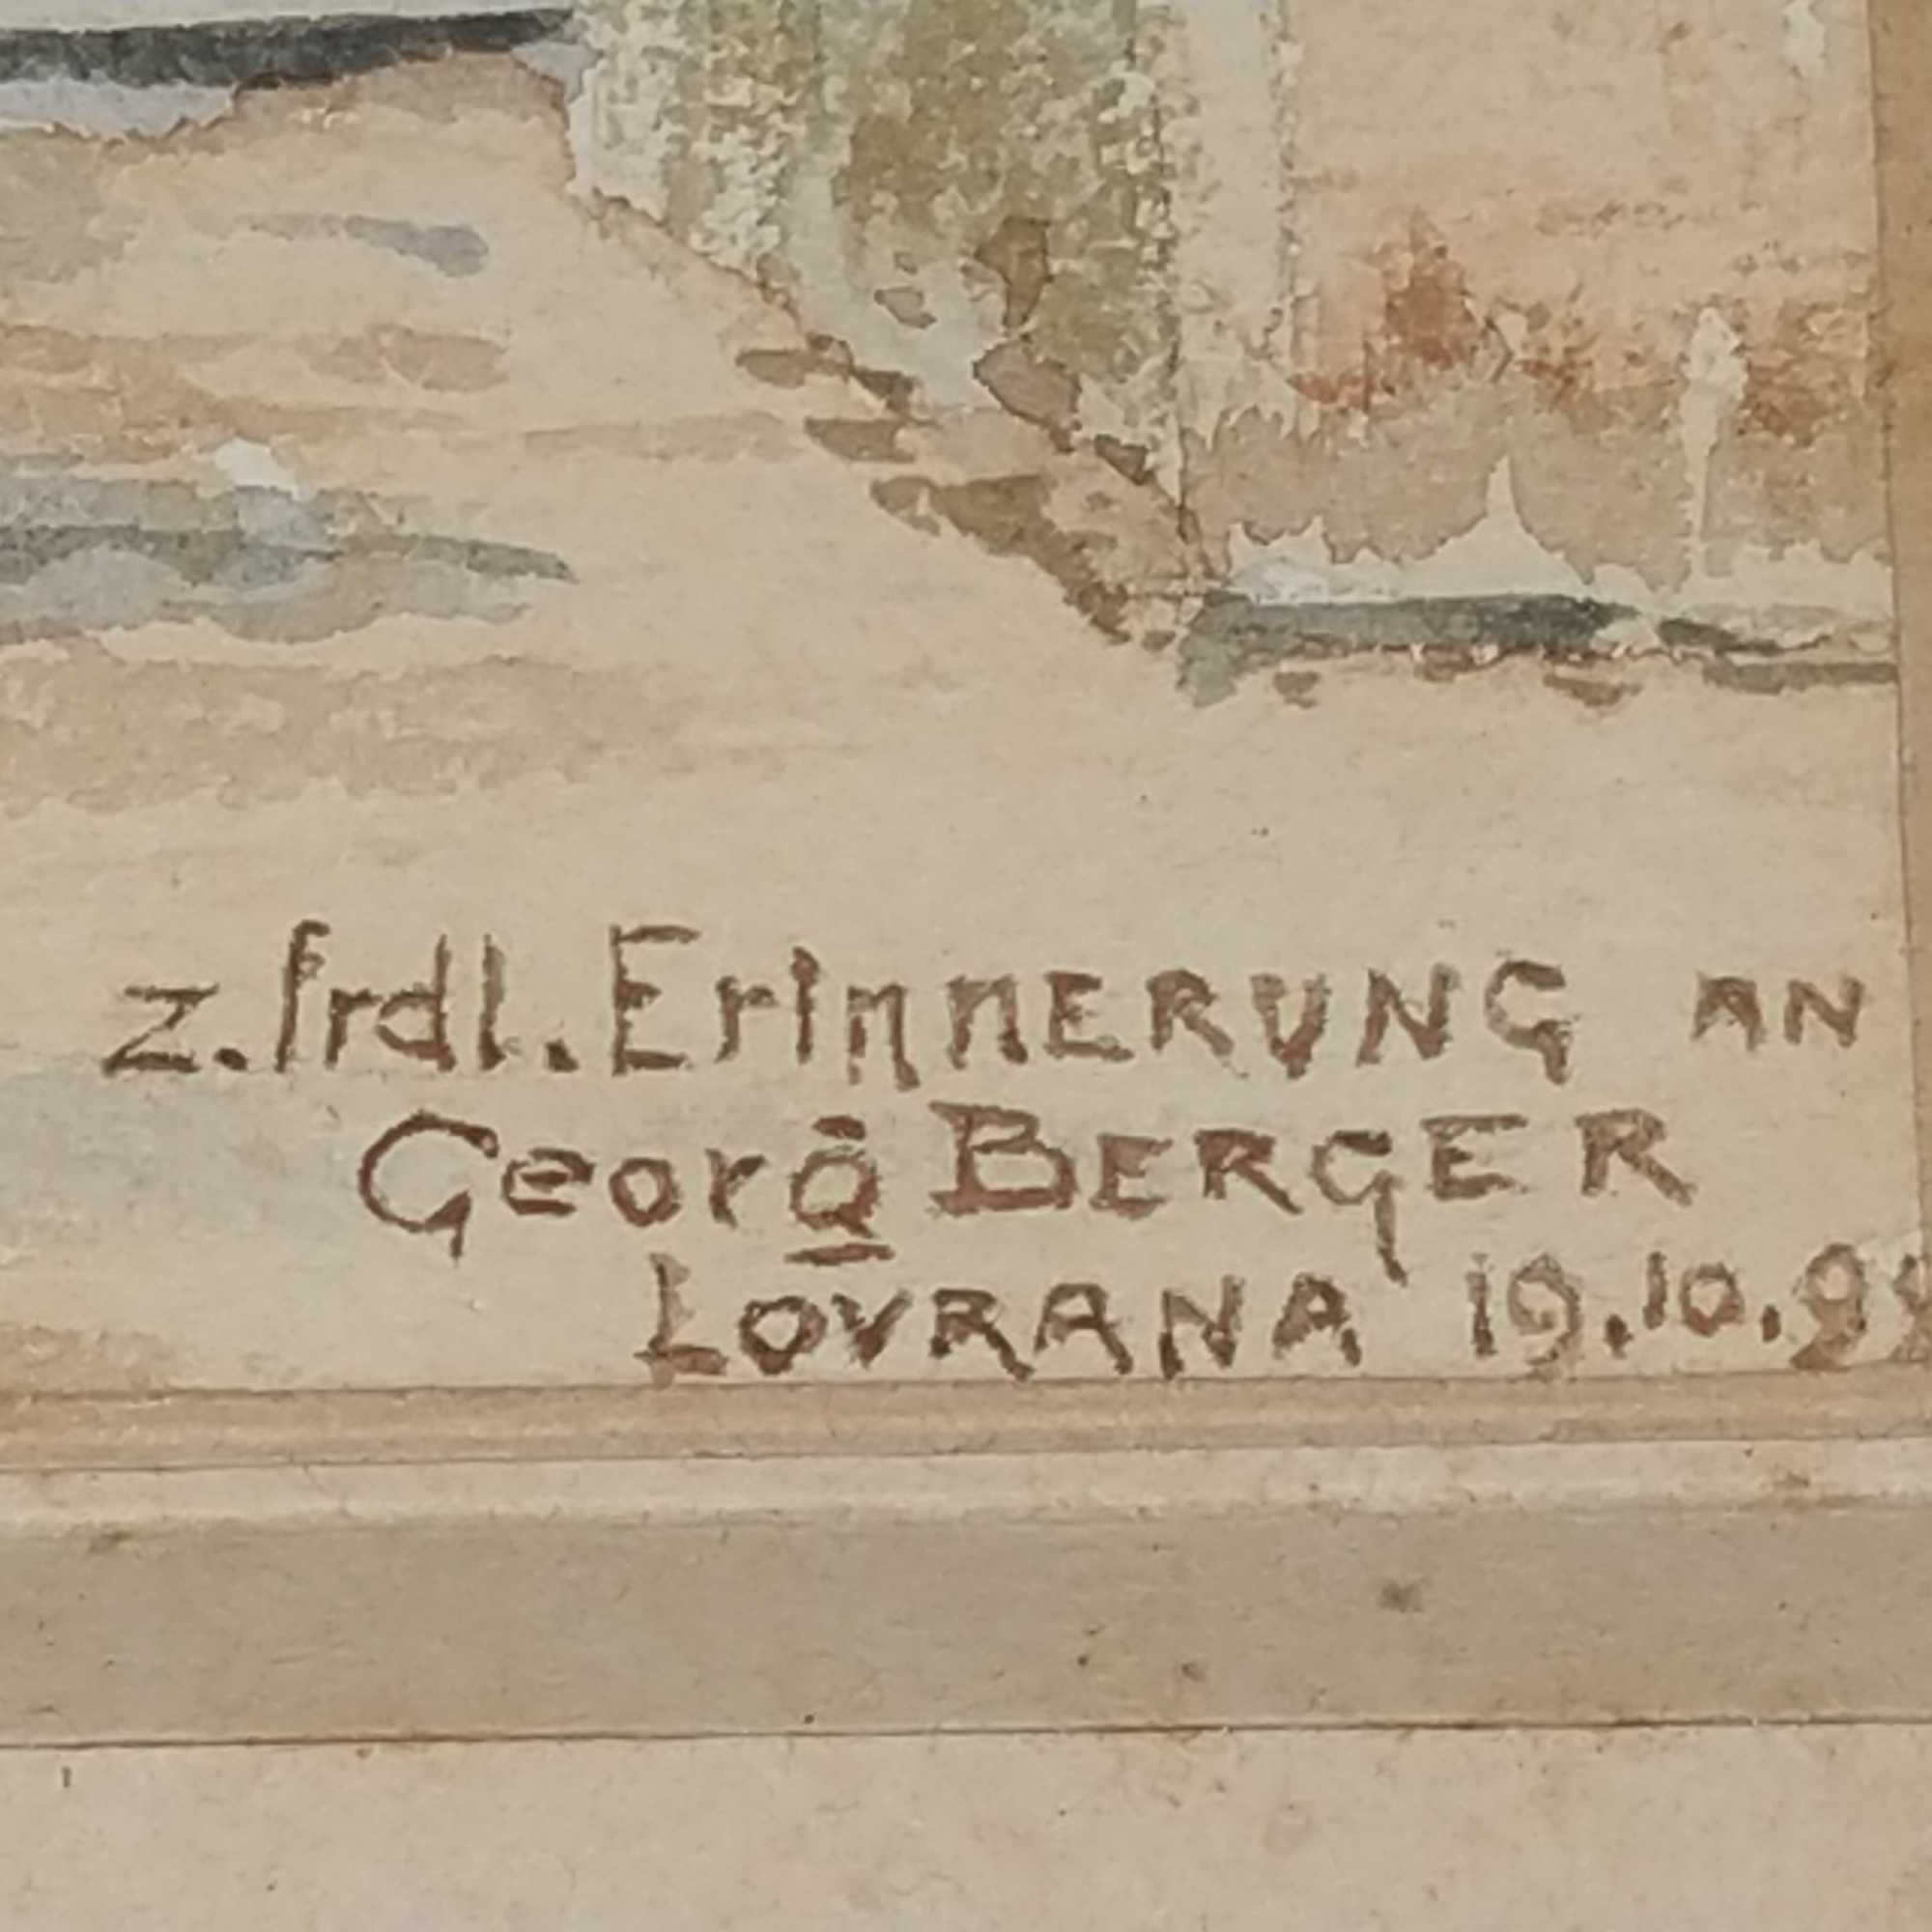 z. frdl. ErinnERUNG AN
Georg BERGER
LOVRANA 19.10.99